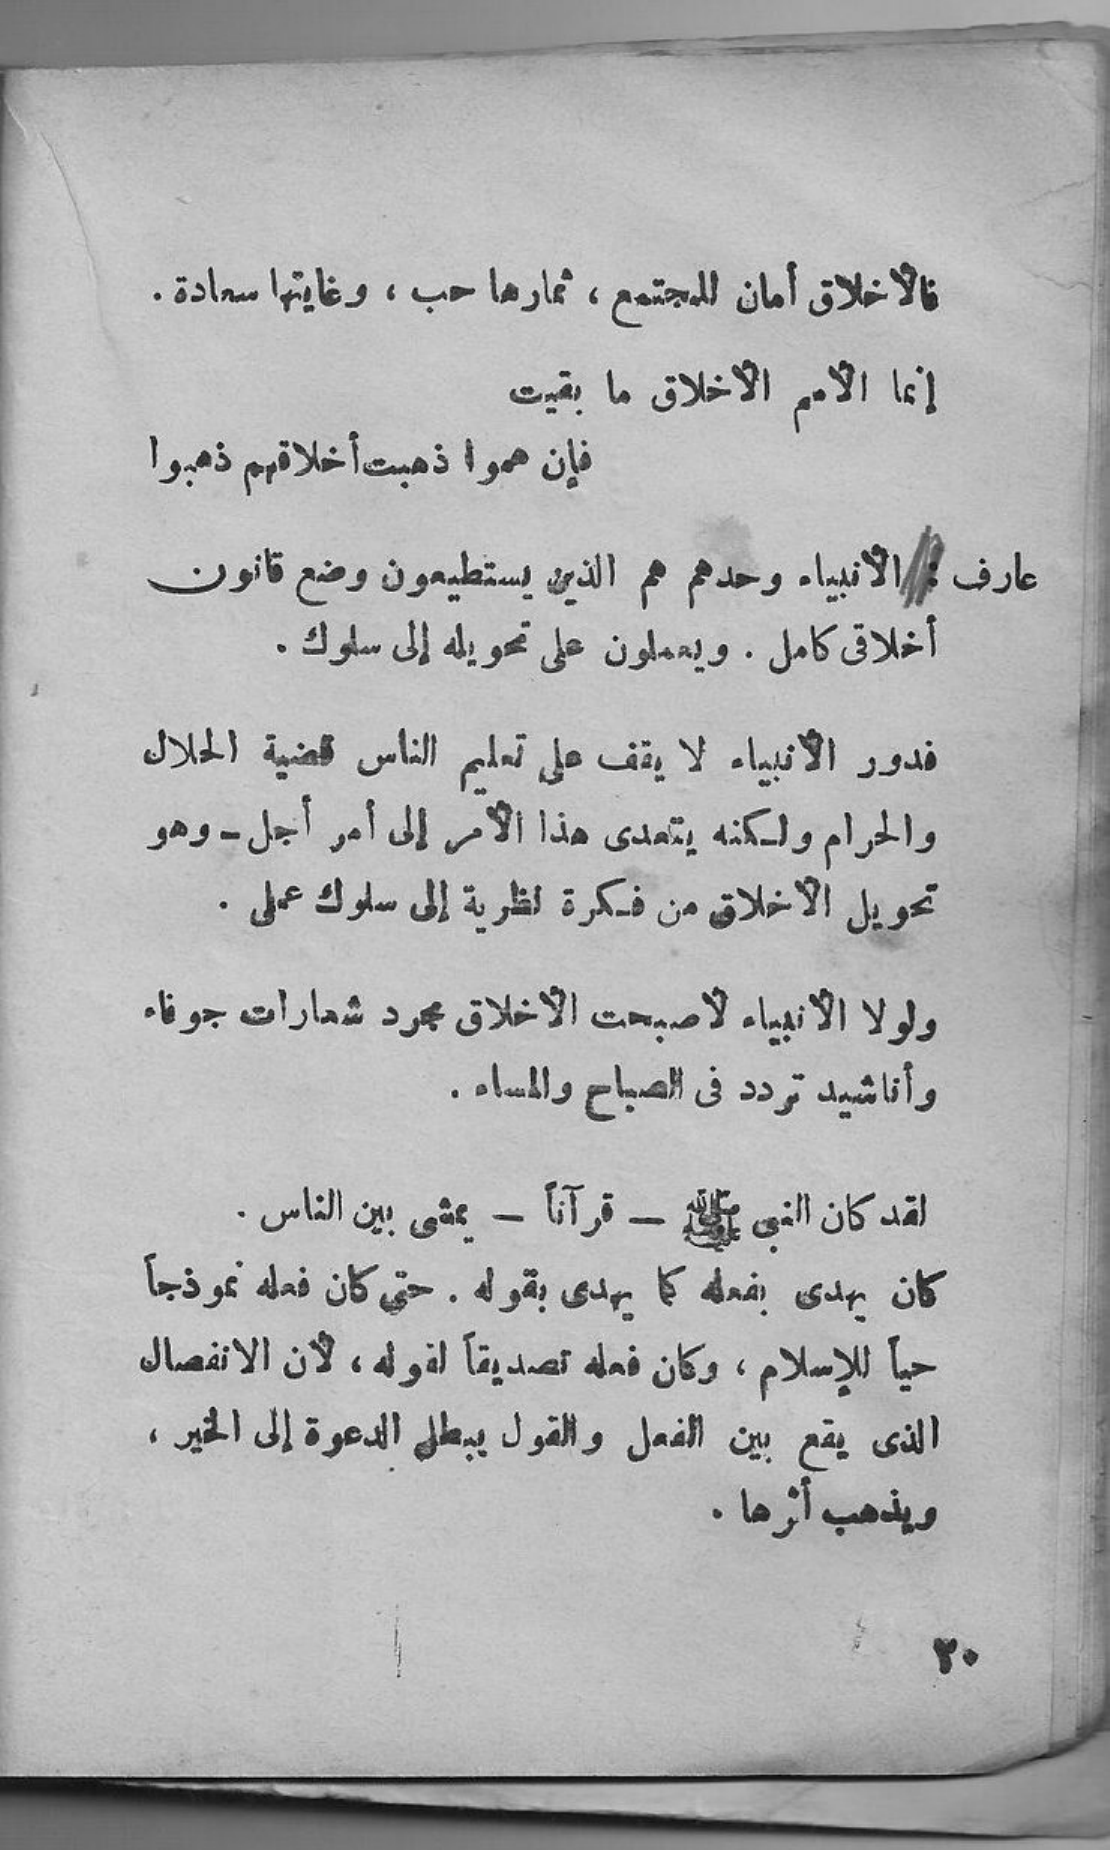 فالأخلاق أمان للمجتمع ، ثمارها حب ، وغايتها سعادة .
إنما الأمم الأخلاق ما بقيت
فإن همموا ذهبت أخلاقهم ذهبوا
عارف : الأنبياء وحدهم هم الذين يستطيعون وضع قانون
أخلاقى كامل . ويعملون على تحويله إلى سلوك .
فدور الأنبياء لا يقف على تعليم الناس قضية الحلال
والحرام ولكنه يتعدى هذا الأمر إلى أمر أجل - وهو
تحويل الأخلاق من فكرة نظرية إلى سلوك عملى .
ولولا الأنبياء لأصبحت الأخلاق مجرد شعارات جوفاء
وأناشيد تردد فى الصباح والمساء .
لقد كان النبى ﷺ – قرآناً – يمشى بين الناس .
كان يهدى بفعله كما يهدى بقوله . حتى كان فعله نموذجاً
حياً للإسلام ، وكان فعله تصديقاً لقوله ، لأن الانفصال
الذى يقع بين الفعل والقول يبطل الدعوة إلى الخير ،
ويذهب أثرها .
٢٠